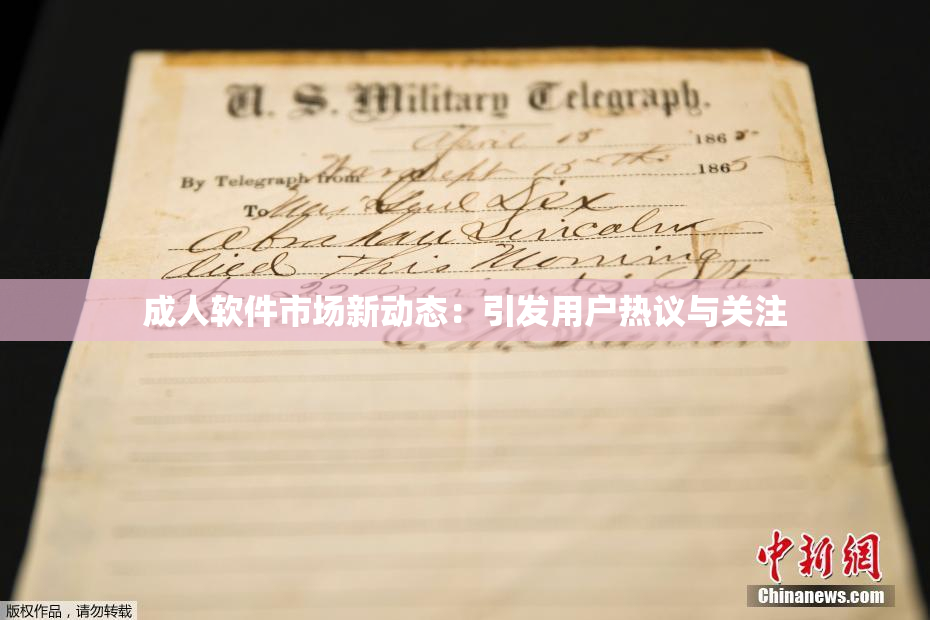 U. S. Military Telegraph.
April 15 1865
By Telegraph from War Dept 15th 1865
To Maj Genl Dix
Abraham Lincoln
died This Morning
22 minutes after
成人软件市场新动态：引发用户热议与关注
中新网
Chinanews.com
版权作品，请勿转载